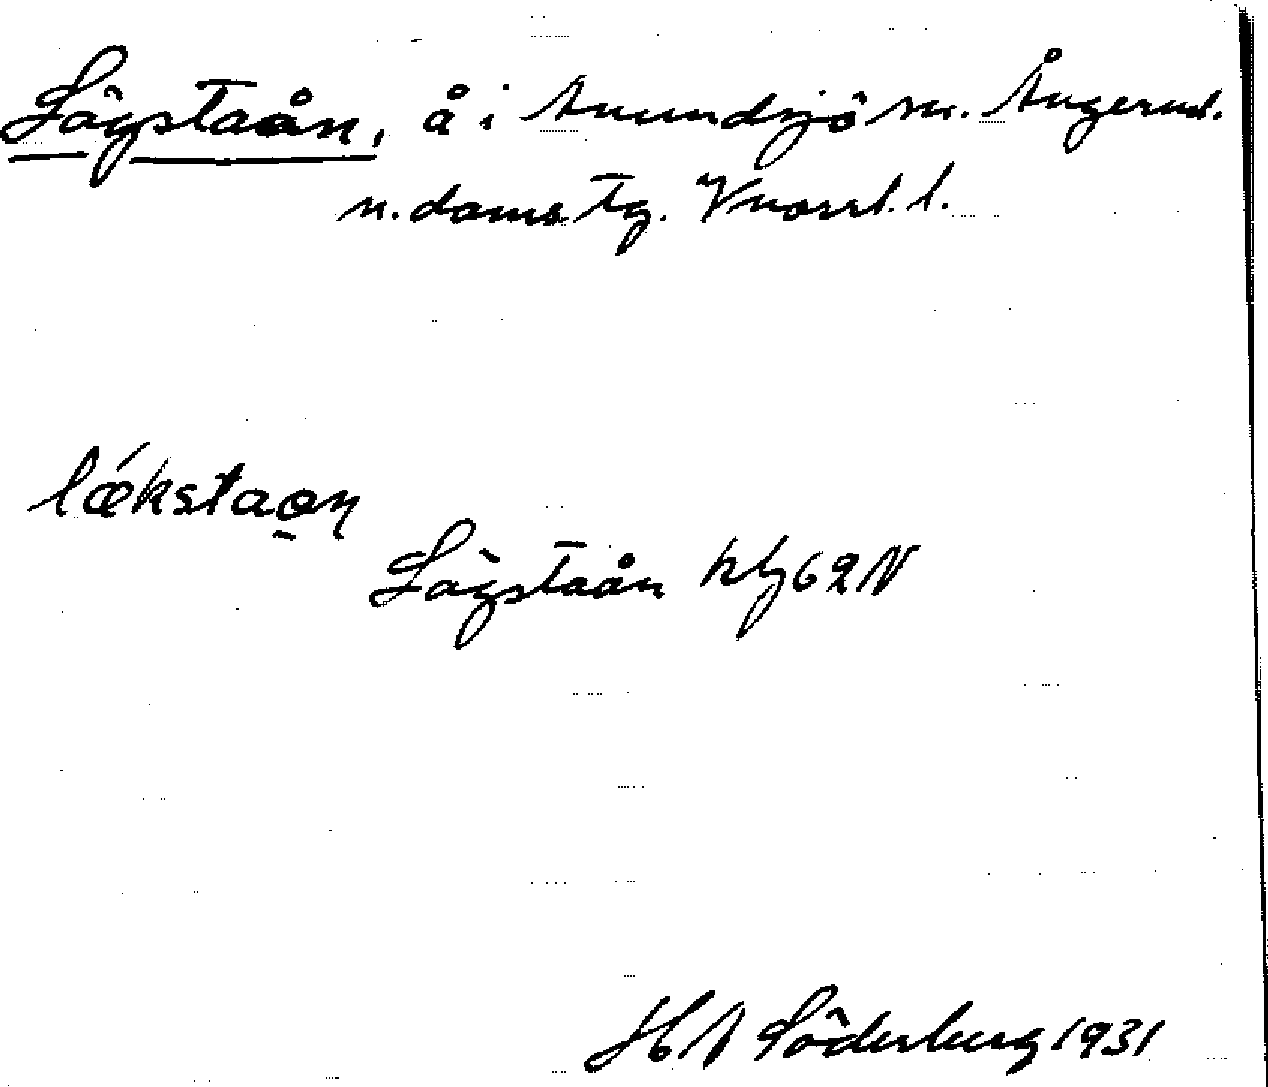 Lägstaån, å i Anundsjö sn. Ångerml.
n. doms. tg. V
lǽkstaon
Lägstaån kbg 62 N
H A Söderberg 1931